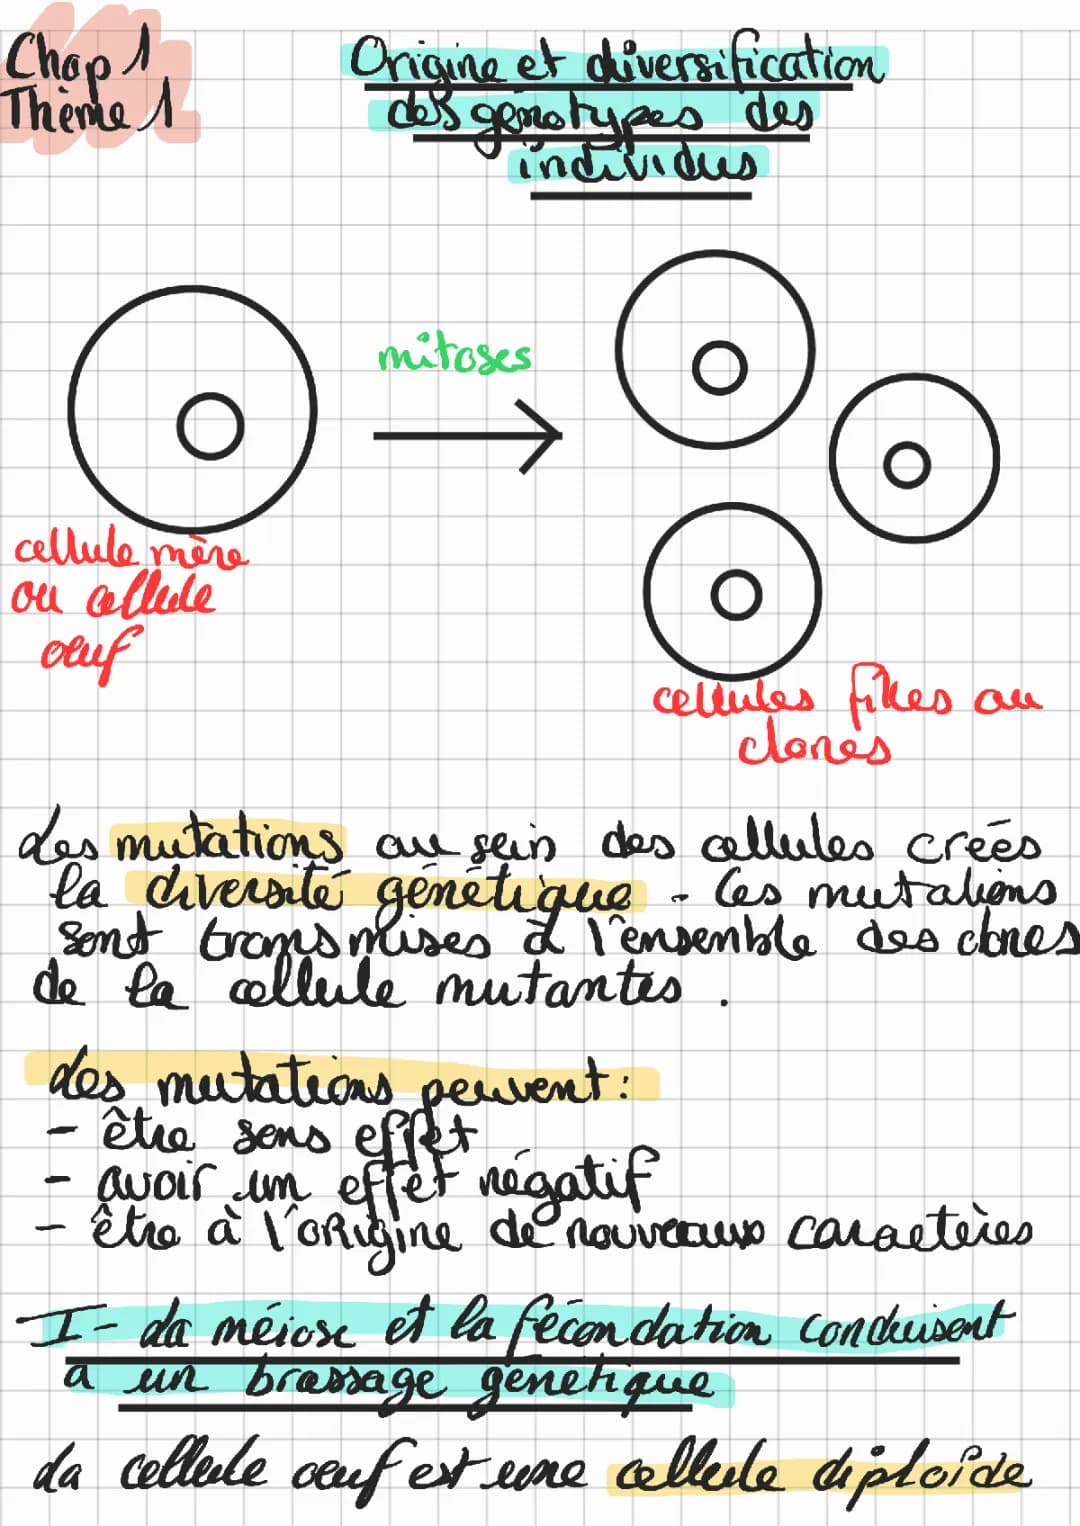 Chap 1
Thème 1
Origine et diversification
des génotypes des
individus
mitoses
cellule mère
ou cellule
œuf
cellules filles ou
clones
Les mutations au sein des cellules créés
la diversité génétique. Ces mutations
sont transmises à l'ensemble des clones
de la cellule mutantes.
Les mutations peuvent:
- être sans effet
- avoir un effet négatif
- être à l'origine de nouveaux caractères
I- La méiose et la fécondation conduisent
à un brassage génétique
La cellule œuf est une cellule diploïde